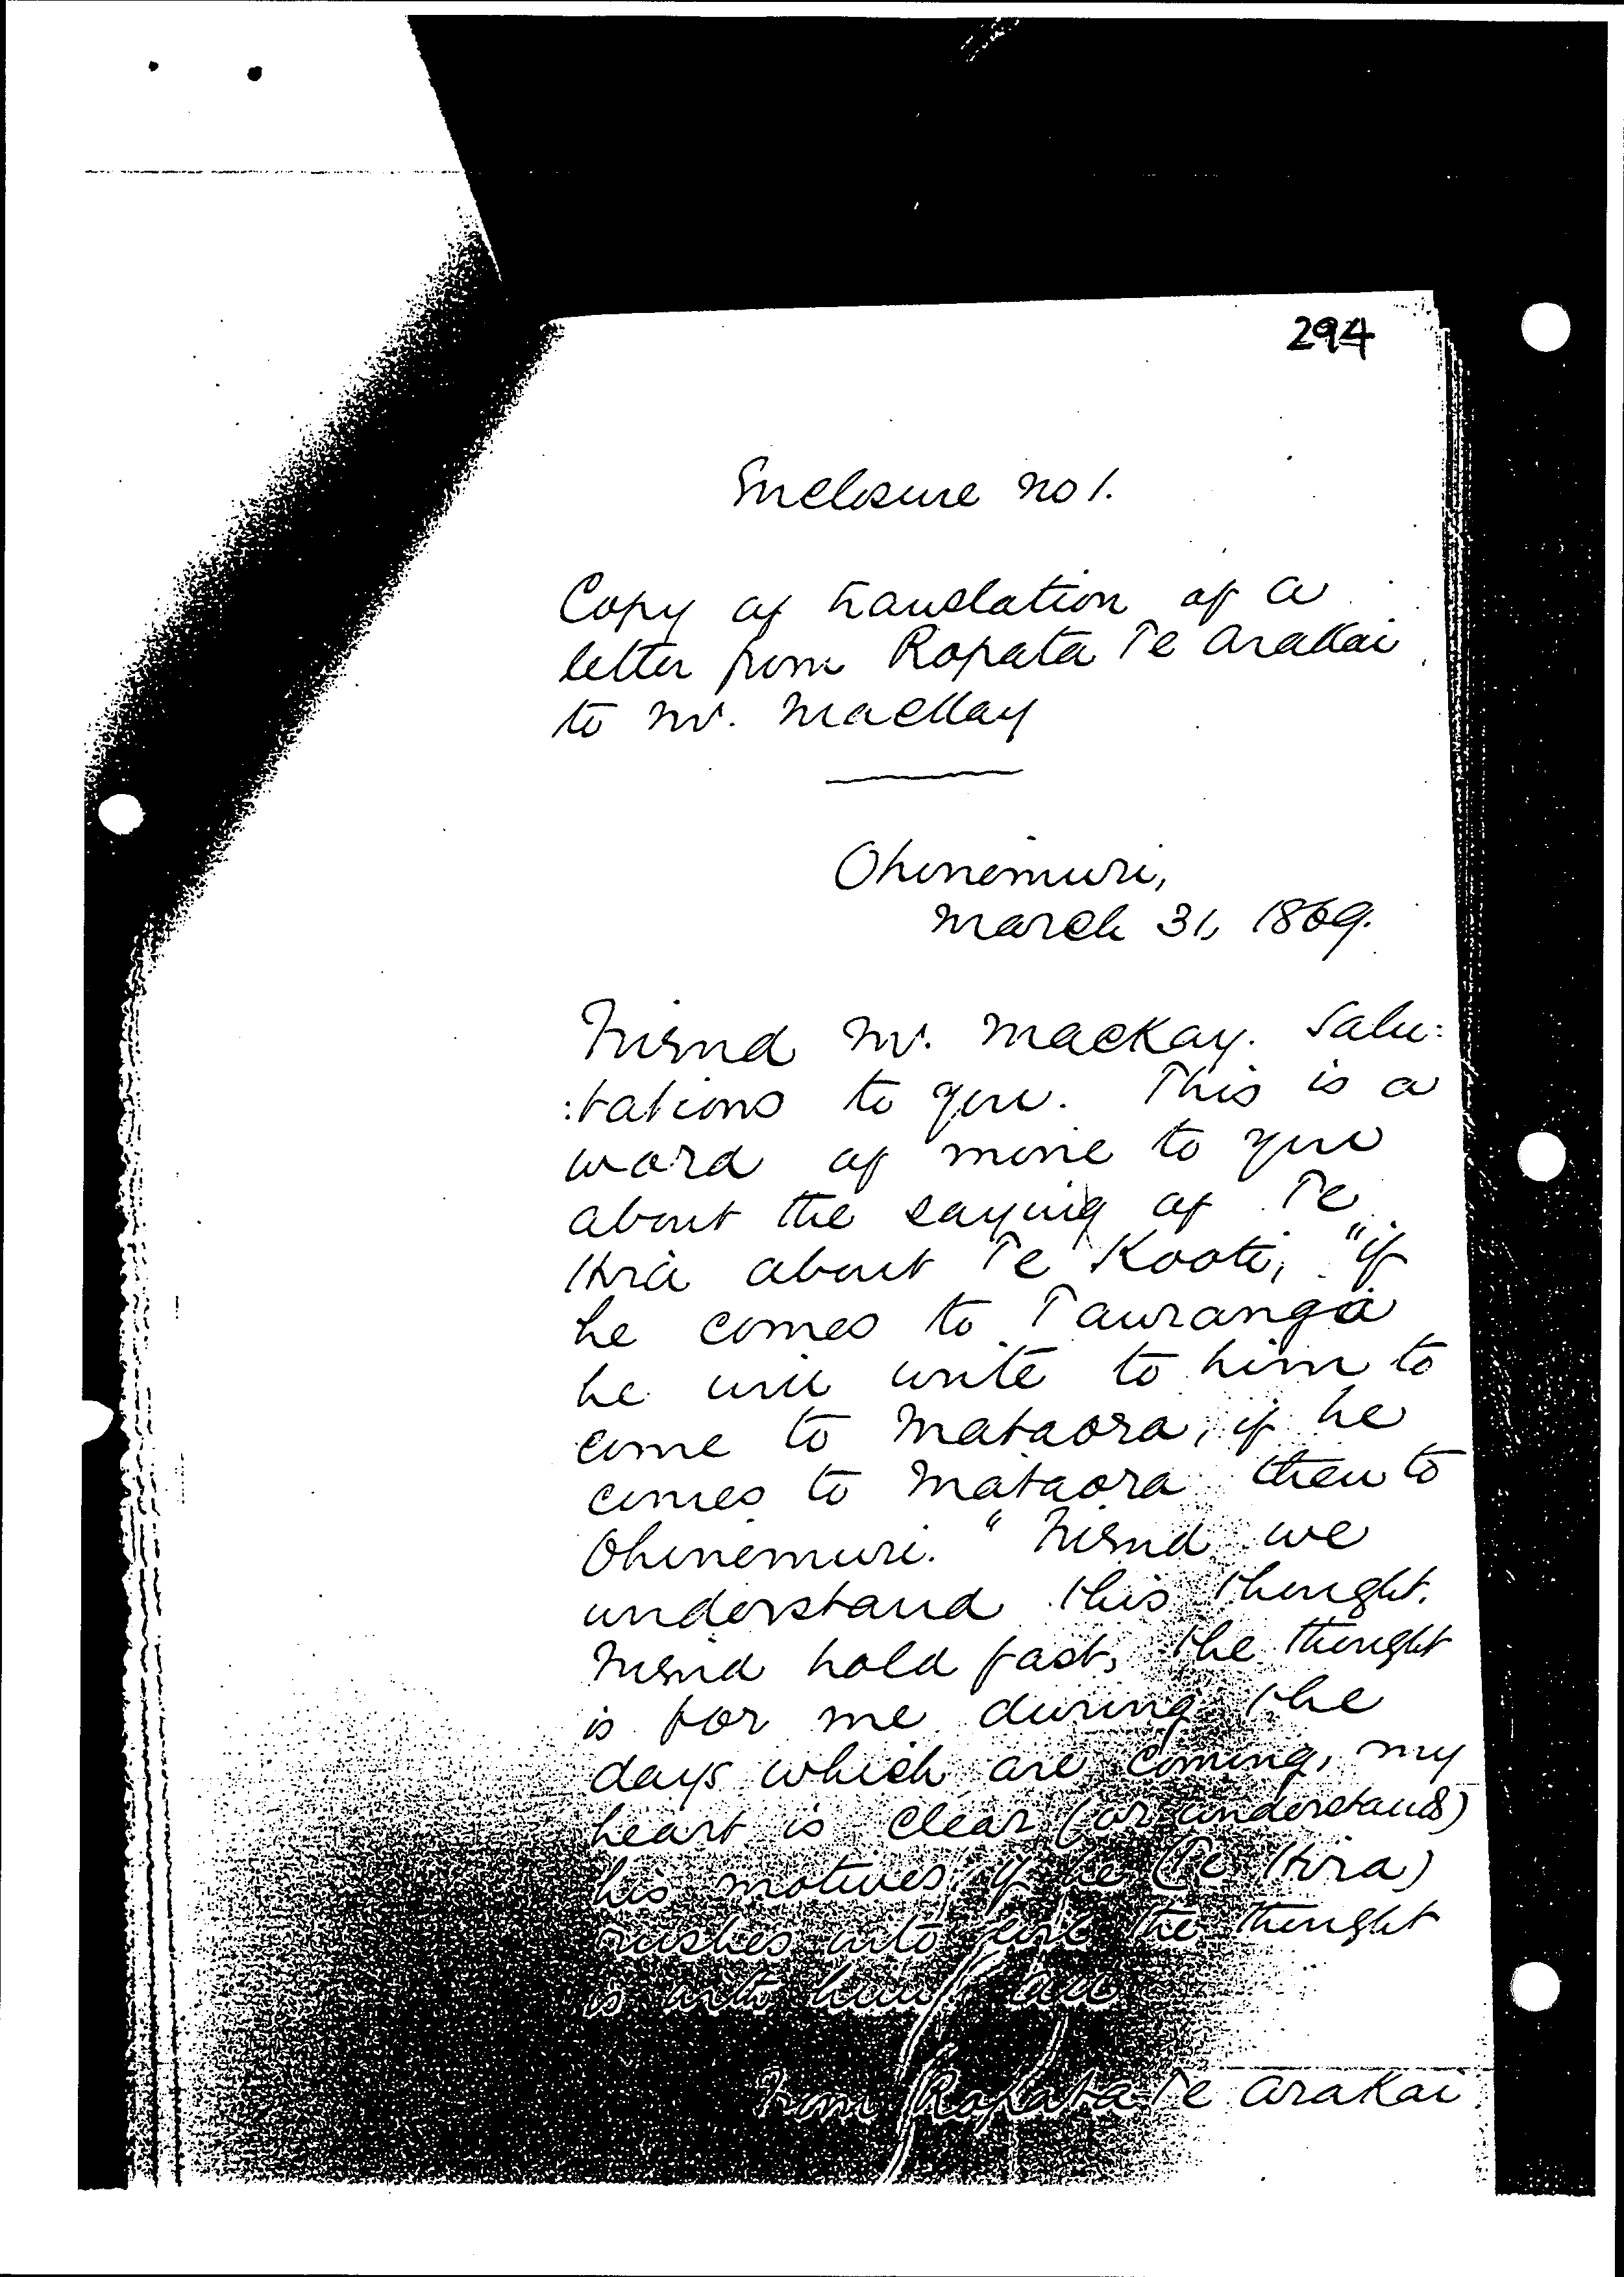 294
Enclosure no 1.
Copy of translation of a
letter from Ropata Te Arakai
to Mr. Mackay
Ohinemuri,
March 31, 1869.
Friend Mr. Mackay. Salu:
:tations to you. This is a
word of mine to you
about the saying of Te
Hira about Te Kooti, "if
he comes to Tauranga
he will write to him to
come to Mataora, if he
comes to Mataora then to
Ohinemuri." Friend we
understand this thought.
Friend hold fast, the thought
is for me during the
days which are coming, my
heart is clear (or understands)
his motives, if he (Te Hira)
rushes into evil the thought
is with him all
From Ropata Te Arakai